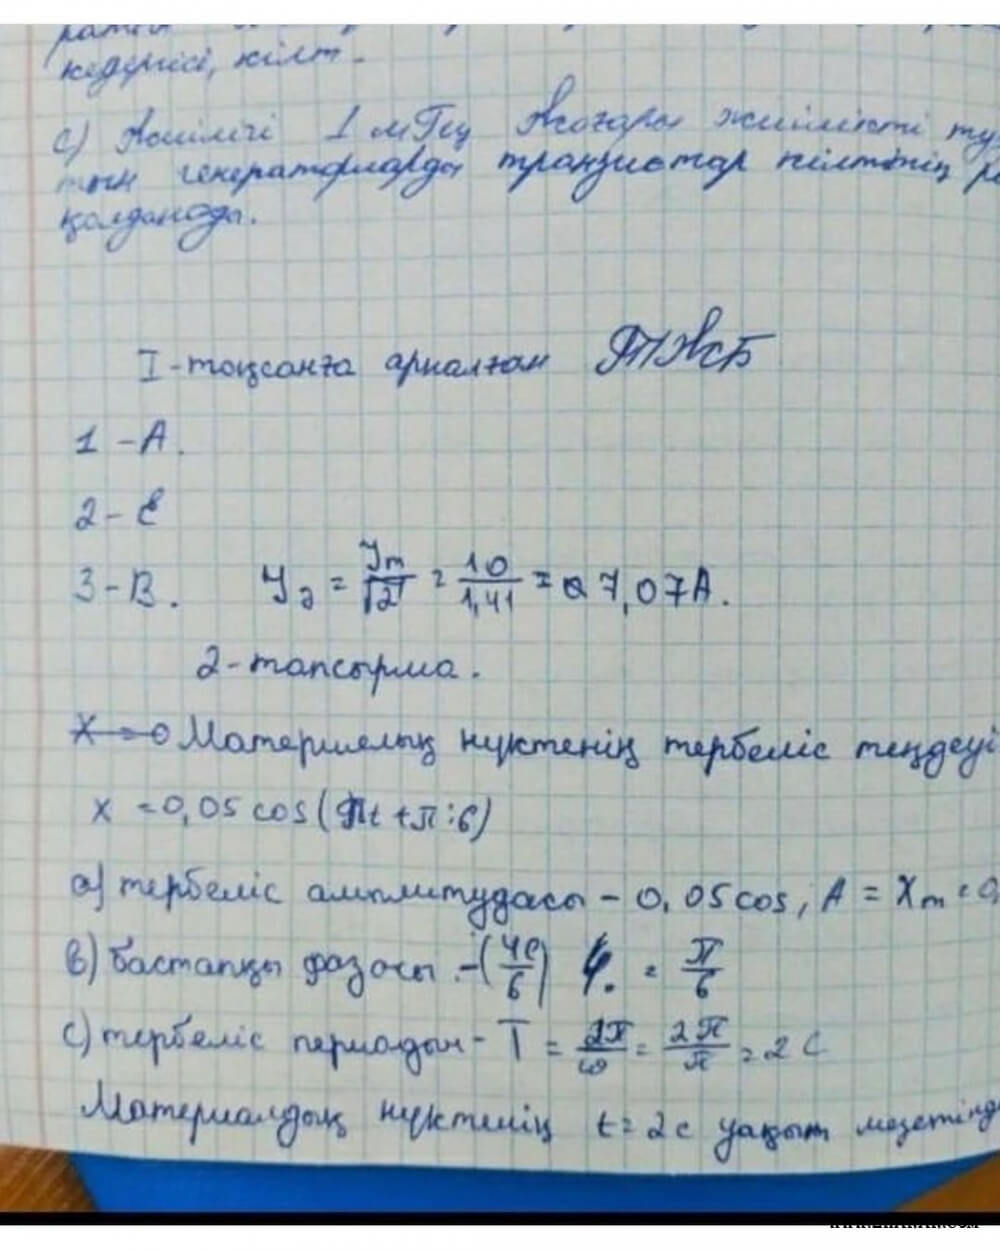 кедергісі, кілт.
с) Жиілігі 1 мГц жоғары жиілікті ту
тын генераторларды транзистор кілтінің ре
қолданады.
I-тоқсанға арналған ТЖБ
1 - А.
2 - Е
3 - В. Iд = Im/√2 = 10/1,41 = 7,07А.
2-тапсырма.
Материялық нүктенің тербеліс теңдеуі
x = 0,05 cos(πt + π:6)
a) тербеліс амплитудасы - 0,05 cos, A = Xm = 0,
в) бастапқы фазасы - φ. = π/6
с) тербеліс периодын - T = 2π/ω = 2π/π = 2 с
Материалдық нүктенің t = 2с уақыт мезетінде